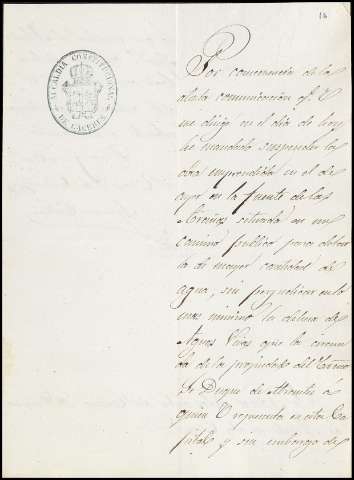 16
ALCALDIA CONSTITUCIONAL
DE CACERES
Por consecuencia de la
atenta comunicacion qe. V.
me dirige en el dia de hoy
he mandado suspender la
obra emprendida en el de
ayer en la fuente de las
situada en un
camino publico para obtener
la de mayor cantidad de
agua, sin perjudicar en lo
mas minimo la dehesa de
Aguas Vivas que la circun
da de la propiedad del Excmo
Sr. Duque de Abrantes á
quien V. representa en esta Ca
pital, y sin embargo de